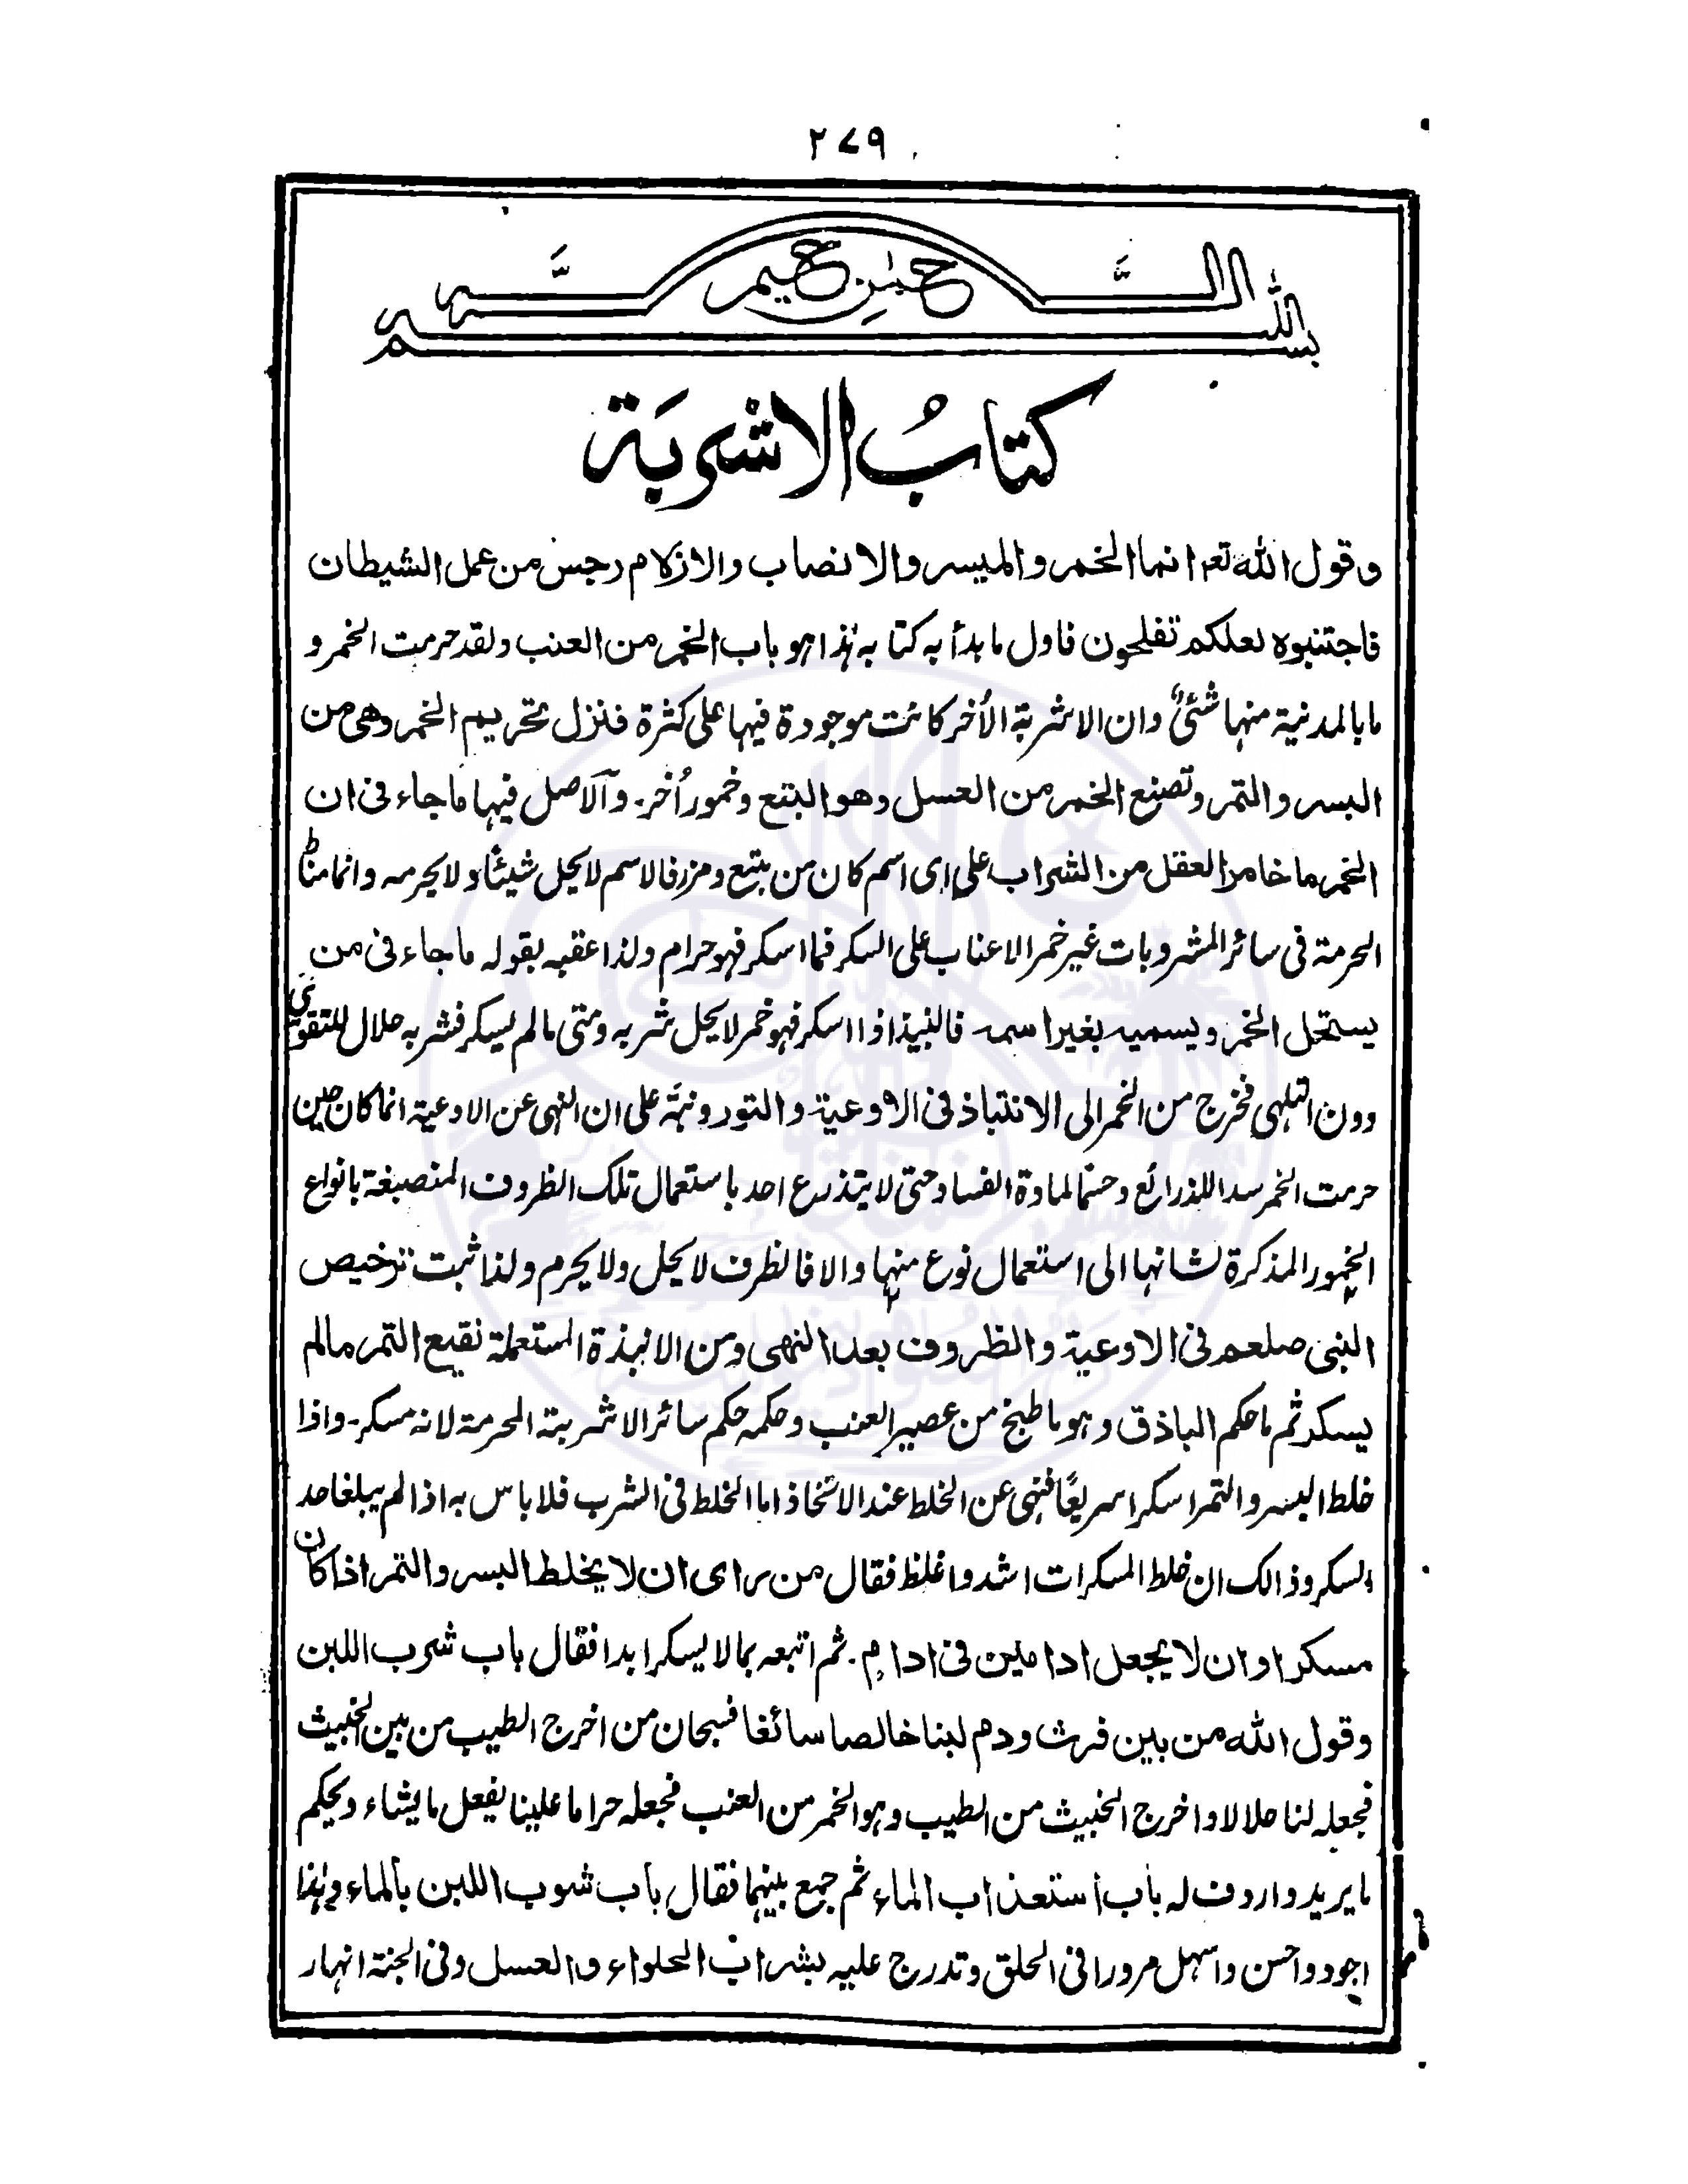 ٢٧٩
بسم الله الرحمن الرحيم
كتابُ الاشربَة
وقول الله تعم انما الخمر والميسر والانصاب والازلام رجس من عمل الشيطان
فاجتنبوه لعلكم تفلحون فاول ما بدأ به كتابه هٰذا هو باب الخمر من العنب ولقد حرمت الخمر و
ما بالمدنية منها شئیٌ وان الاشربة الأخر كانت موجودة فيها على كثرة فنزل تحريم الخمر وهى من
البسر والتمر وتصنع الخمر من العسل وهو البتع وخمور اُخر۔ والاصل فيها ما جاء فى ان
الخمر ما خامر العقل من الشراب على اى اسم كان من بتع ومزر فالاسم لا يحل شيئًا ولا يحرمه وانما مناط
الحرمة فى سائر المشروبات غير خمر الاعناب على السكر فما اسكر فهو حرام ولذا عقبه بقوله ما جاء فى من
يستحل الخمر ويسميه بغير اسمه فالنبيذ اذا اسكر فهو خمر لا يحل شربه ومتى ما لم يسكر فشربه حلال للتقوّى
دون التلهى فخرج من الخمر الى الانتباذ فى الاوعية والتور ونبّه على ان النهى عن الاوعية انما كان حين
حرمت الخمر سدا للذرائع وحسمًا لمادة الفساد حتى لا يتذرع احد باستعمال تلك الظروف المنصبغة بانواع
الخمور المذكرة لشانها الى استعمال نوع منها والا فالظرف لا يحل ولا يحرم ولذا ثبت ترخيص
النبى صلعم فى الاوعية والظروف بعد النهى ومن الانبذة المستعملة نقيع التمر مالم
يسكر ثم ما حكم الباذق وهو ما طبخ من عصير العنب وحكمه حكم سائر الاشربة المحرمة لانه مسكر۔ واذا
خلط البسر والتمر اسكرا سريعًا فنهى عن الخلط عند الاتخاذ اما الخلط فى الشرب فلا باس به اذا لم يبلغا حد
السكر وذالك ان خلط المسكرات اشد واغلظ فقال من راى ان لا يخلط البسر والتمر اذا كان
مسكرا وان لا يجعل ادامين فى ادام۔ ثم اتبعه بما لا يسكر ابدا فقال باب شرب اللبن
وقول الله من بين فرث ودم لبنا خالصا سائغا فسبحان من اخرج الطيب من بين الخبيث
فجعله لنا حلالا واخرج الخبيث من الطيب وهو الخمر من العنب فجعله حراما علينا يفعل ما يشاء ويحكم
ما يريد واردف له باب استعذاب الماء ثم جمع بينهما فقال باب شوب اللبن بالماء وهٰذا
اجود واحسن واسهل مرورا فى الحلق وتدرج عليه بشراب الحلواء والعسل وفى الجنة انهار